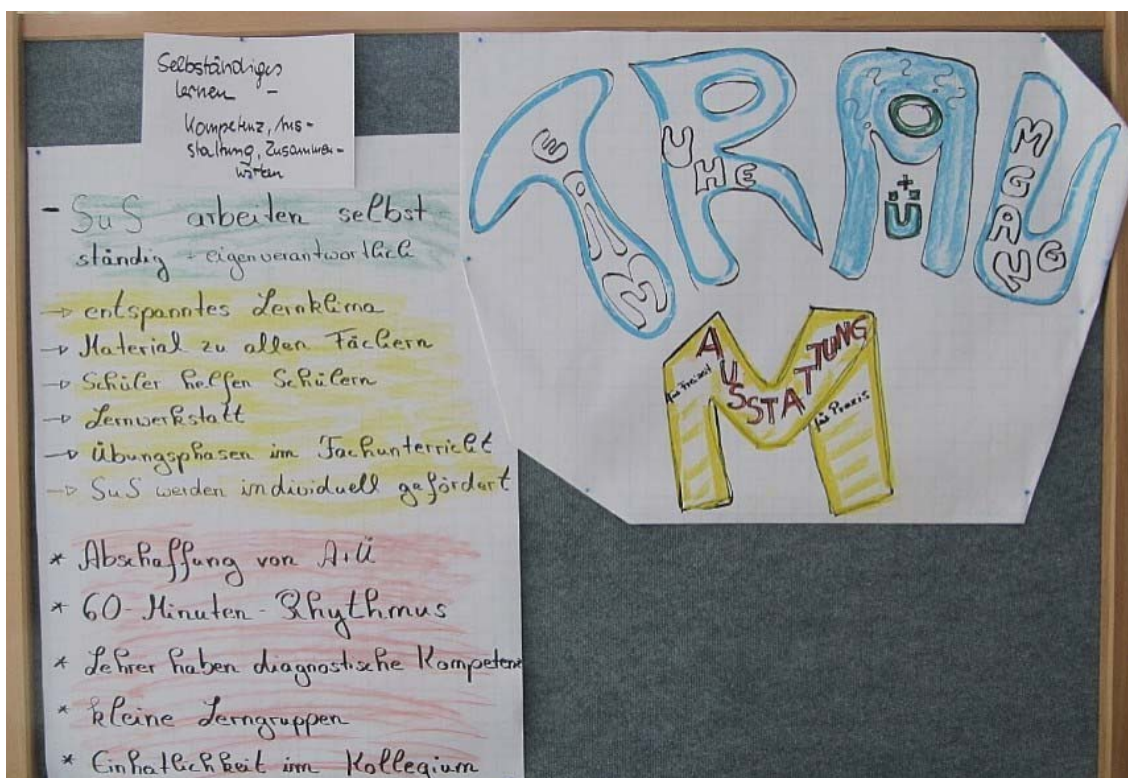 Selbständiges
lernen -
Kompetenz, Aus-
staltung, Zusammen-
wirken
- SuS arbeiten selbst
ständig - eigenverantwortlich
→ entspanntes Lernklima
→ Material zu allen Fächern
→ Schüler helfen Schülern
→ Lernwerkstatt
→ Übungsphasen im Fachunterricht
→ SuS werden individuell gefördert
* Abschaffung von A+Ü
* 60-Minuten-Rhythmus
* Lehrer haben diagnostische Kompetenz
* kleine Lerngruppen
* Einhatlichkeit im Kollegium
TRAU
EAM
UHE
???
+
Ü
MGANG
M
AUSSTATTUNG
für Freizeit
für Praxis